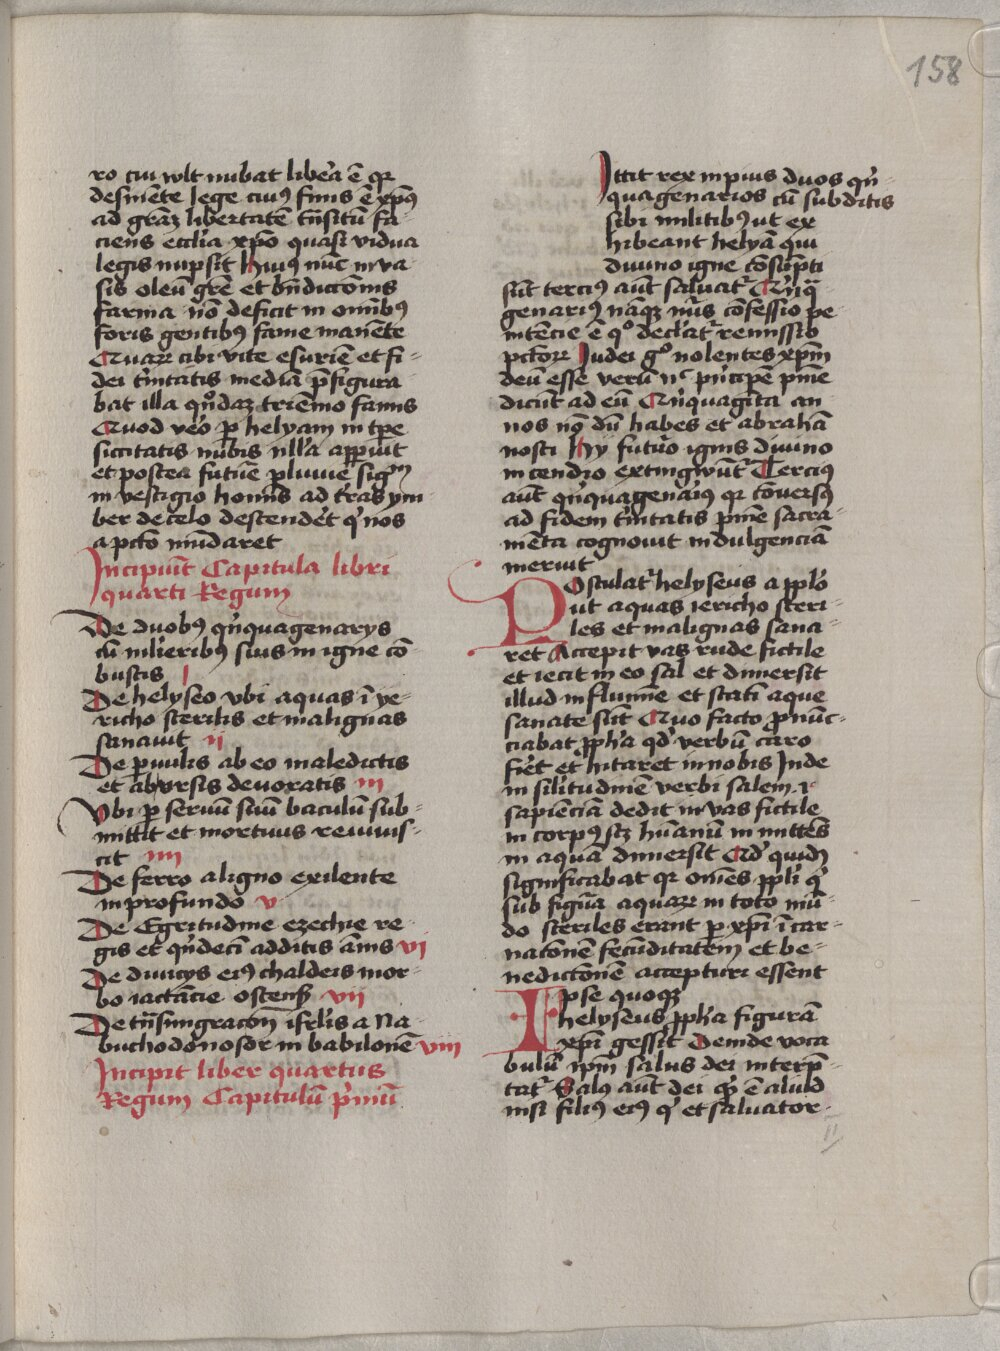 158
ro cui wlt nubat liberͣa ē qͥꝛ
desinēte lege cuiꝰ finis ē xp̄ꝰ
ad grāꝫ libertatē tn̄sitū fa⸗
ciens eccl̓ia xp̄o quasi vidua
legis nupsit Huiꝰ nūc in va
sis oleū grē et bn̄dictionis
farina nō deficit in om̄ibꝰ
foris gentibꝰ fame manēte
Quaꝝ cibi vite esuriē et fi⸗
dei tͥnitatis mediā p̄figura
bat illa qͦndaꝫ triēnio famis
Quod ve͛o ꝑ helyam in tp̄e
siccitatis nubis nll̓a appͣuit
et postea future pluuie sigͫ
in vestigio hoīnis ad tͬras ym
ber de celo descendeͬt qͥ nos
a pctō mūdaret
Incipiūt Capitula libri
quarti Regum
De duobꝰ qͥnquagenarys
cū mͥlieribꝰ suis in igne cō
bustis I
De helyseo vbi aquas ī ye⸗
richo sterilis et malignas
sanauit ii
De ꝑuulis ab eo maledictis
et ab vrsis deuoratis iii
Vbi ꝑ seruū suū baculū sub⸗
mittit et mortuus reuiuis⸗
cit iiii
De ferro a ligno exilente
in profundo v
De Egritudine ezechie re⸗
gis et qͥndecī additis ānis vi
De diuicijs eiꝰ chaldeis mor⸗
bo iactācie ostensis vii
De tn̄smigracōn isrl̓is a Na⸗
buchodonosor in babilonē viii
Incipit liber quartus
Regum Capitulū pͥmū
Ittit rex inpius duos qͥn⸗
quagenarios cū subditis
sibi militibꝰ ut ex
hibeant helyā qui
diuino igne cōsūpti
sūt tercius aūt saluatͬ Qͥnqͣ
genariꝰ nāqꝫ nr̄is cōfessio pe
nitēcie ē qͦ declaͣtͬ remissio
pctōrꝝ Iudei gͦ nolentes xp̄m
deū esse verū nͨ pͥncipē pͥme
dicūt ad eū Qͥnquagīta an
nos nō dū habes et abrahā
nosti Hy futuͬo ignis diuino
incendio extingwūtͬ Terciꝰ
aūt qͥnquagenaͬiꝰ qͥꝛ cōuersꝰ
ad fidem tͥnitatis pͥme sacra
mēta cognouit indulgenciā
meruit
Postulatͬ helyseus a ppl̓o
ut aquas iericho steri⸗
les et malignas sana⸗
ret Accepit vas rude fictile
et iecit in eo sal et dimersit
illud in flumīe et statī aque
sanate sūt Quo facto ꝓnūc⸗
ciabat ꝓph̓a qd̓ verbū caro
fieͬt et hītaret in nobis Inde
in sil̓itudinē verbi salem ⁊
sapiēciā dedit in vas fictile
in corpꝰ sꝫ hūanū in mittēs
in aquā dimersit Ad̓ quidē
significabat qͥꝛ om̄es ppl̓i qͥ
sub figuͬa aquaꝝ in toto mū⸗
do steriles erant ꝑ xp̄i īcar⸗
nacionē fecūditatem et be⸗
nedictionē accepturi essent
Ipse quoqꝫ
helyseus ꝓph̓a figurā
xp̄i gessit Deinde voca
bulū ip̄m salus dei interp̄⸗
tatͬ Salꝰ aūt dei qͥs ē aliud
nisi filiꝰ eiꝰ qͥ et saluator